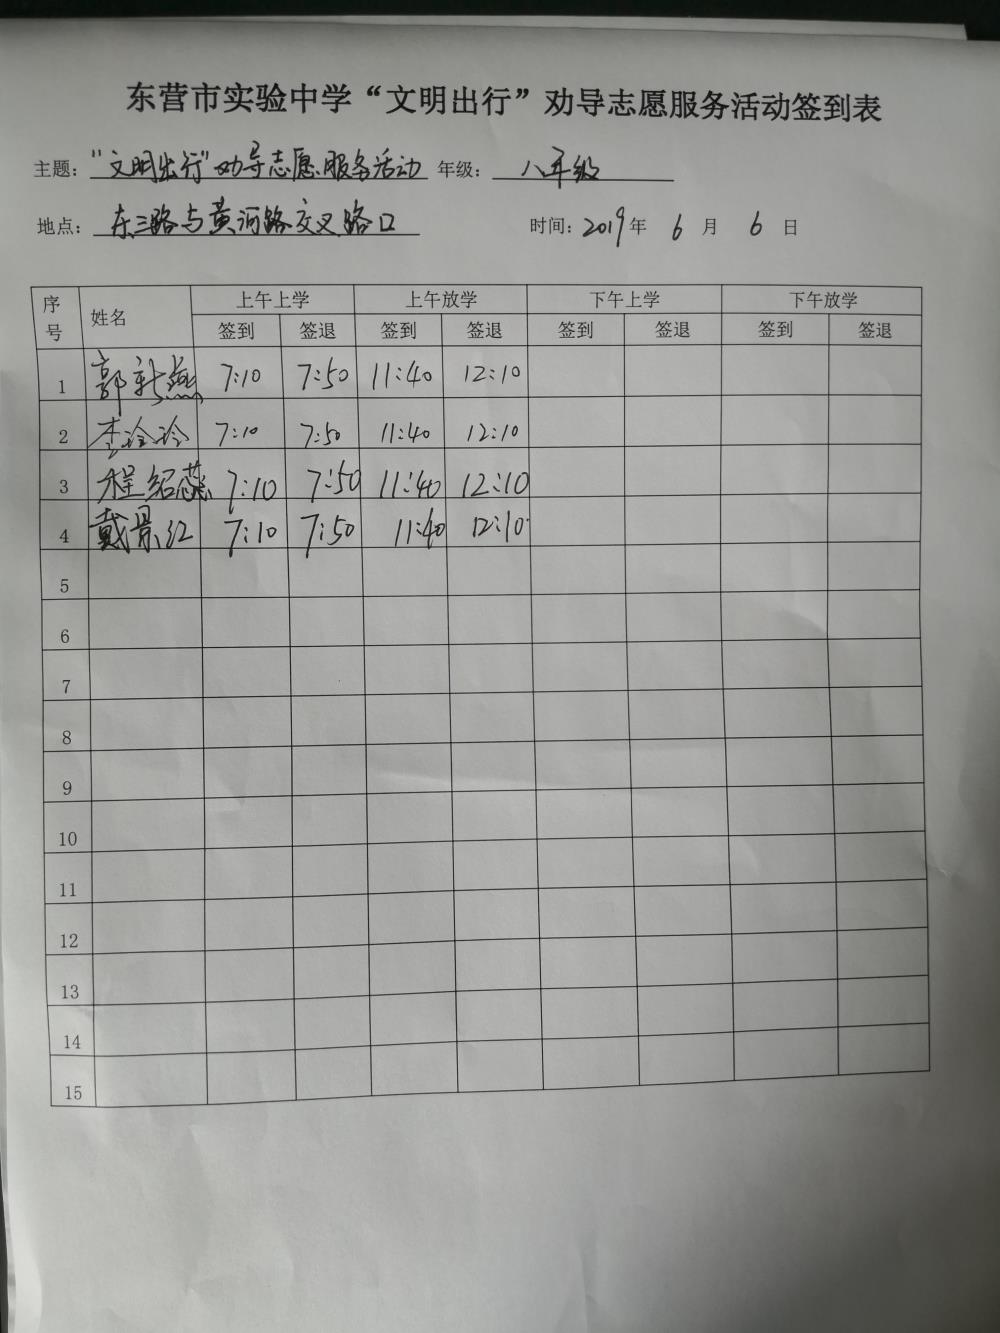 东营市实验中学“文明出行”劝导志愿服务活动签到表
主题：“文明出行”劝导志愿服务活动 年级：八年级
地点：东三路与黄河路交叉路口 时间：2019年 6 月 6 日
序号 姓名 上午上学 上午放学 下午上学 下午放学
签到 签退 签到 签退 签到 签退 签到 签退
1 郭新燕 7:10 7:50 11:40 12:10
2 李玲玲 7:10 7:50 11:40 12:10
3 程绍蕊 7:10 7:50 11:40 12:10
4 戴景红 7:10 7:50 11:40 12:10
5
6
7
8
9
10
11
12
13
14
15